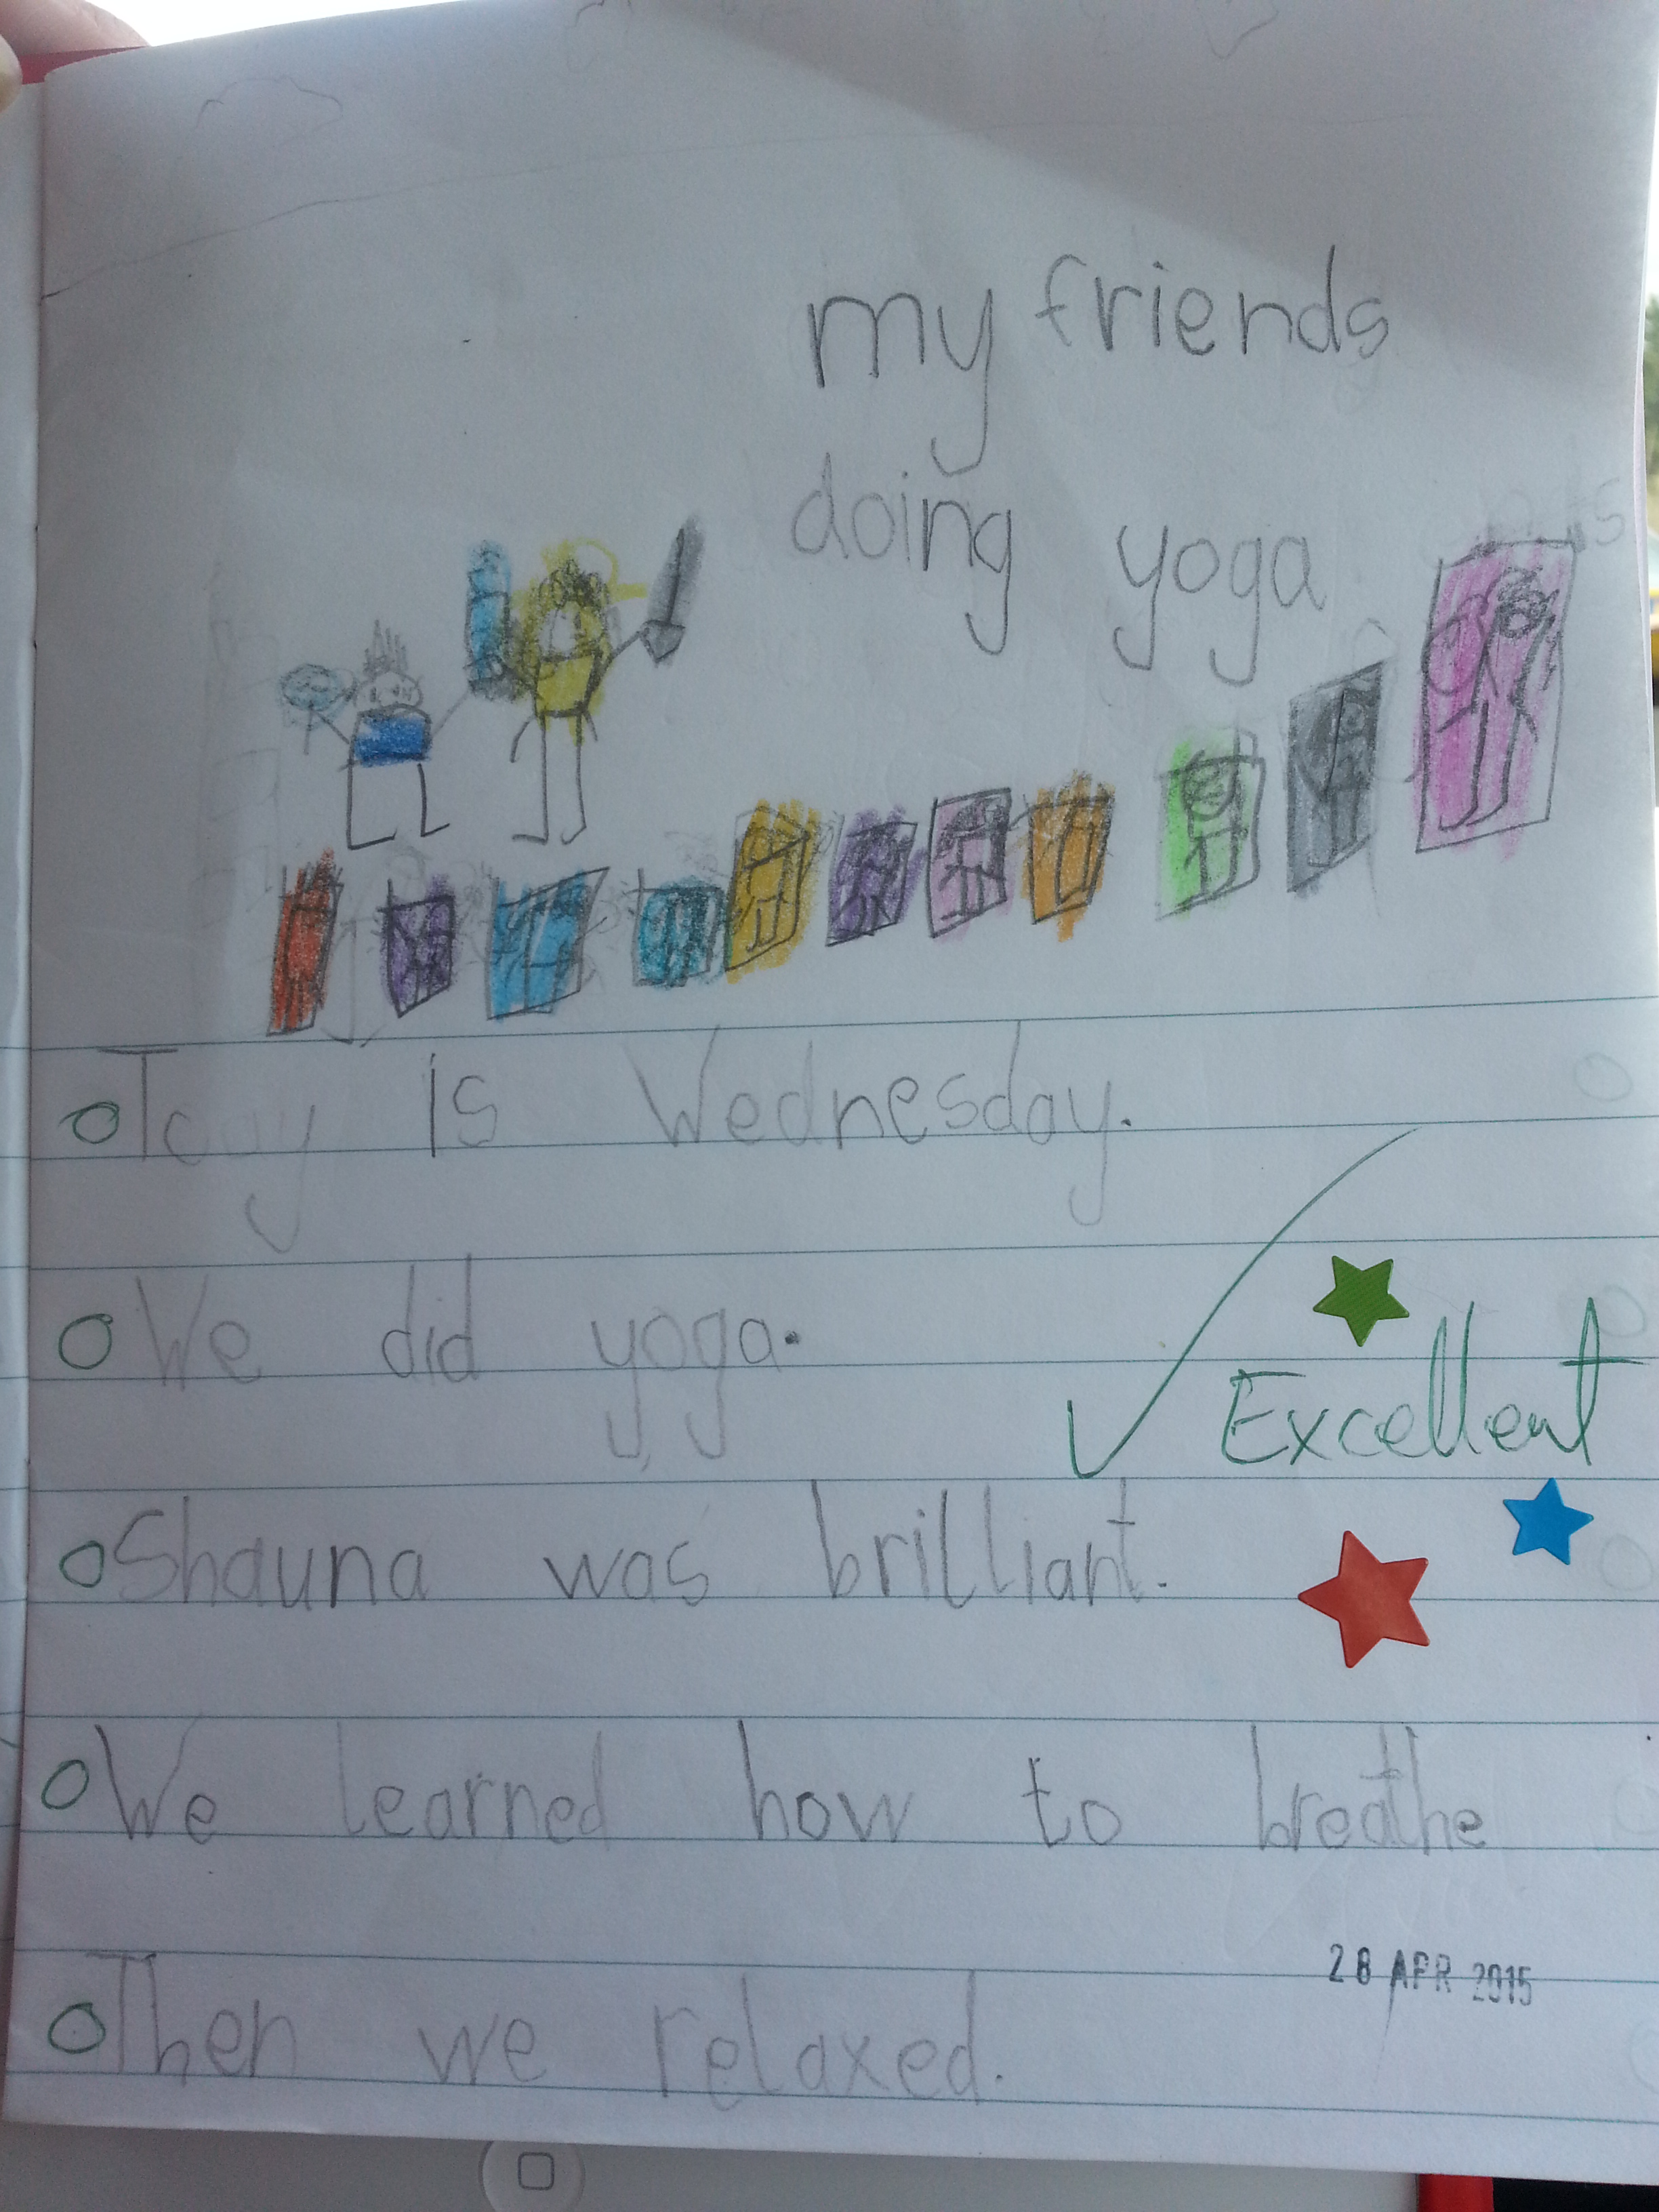 my friends
doing yoga
Today is Wednesday.
We did yoga.
Excellent
Shauna was brilliant.
We learned how to breathe
28 APR 2015
Then we relaxed.